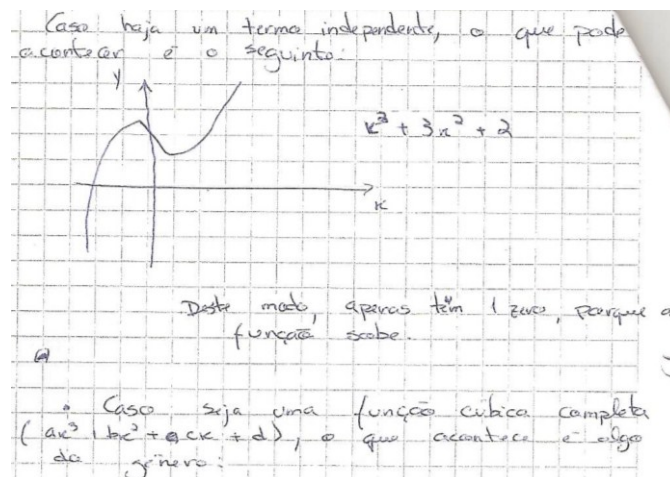 Caso haja um termo independente, o que pode
acontecer é o seguinte:
y
x³ + 3x² + 2
x
Deste modo, apenas têm 1 zero, porque a
função sobe.
• Caso seja uma função cúbica completa
(ax³ + bx² + cx + d), o que acontece é algo
do género: